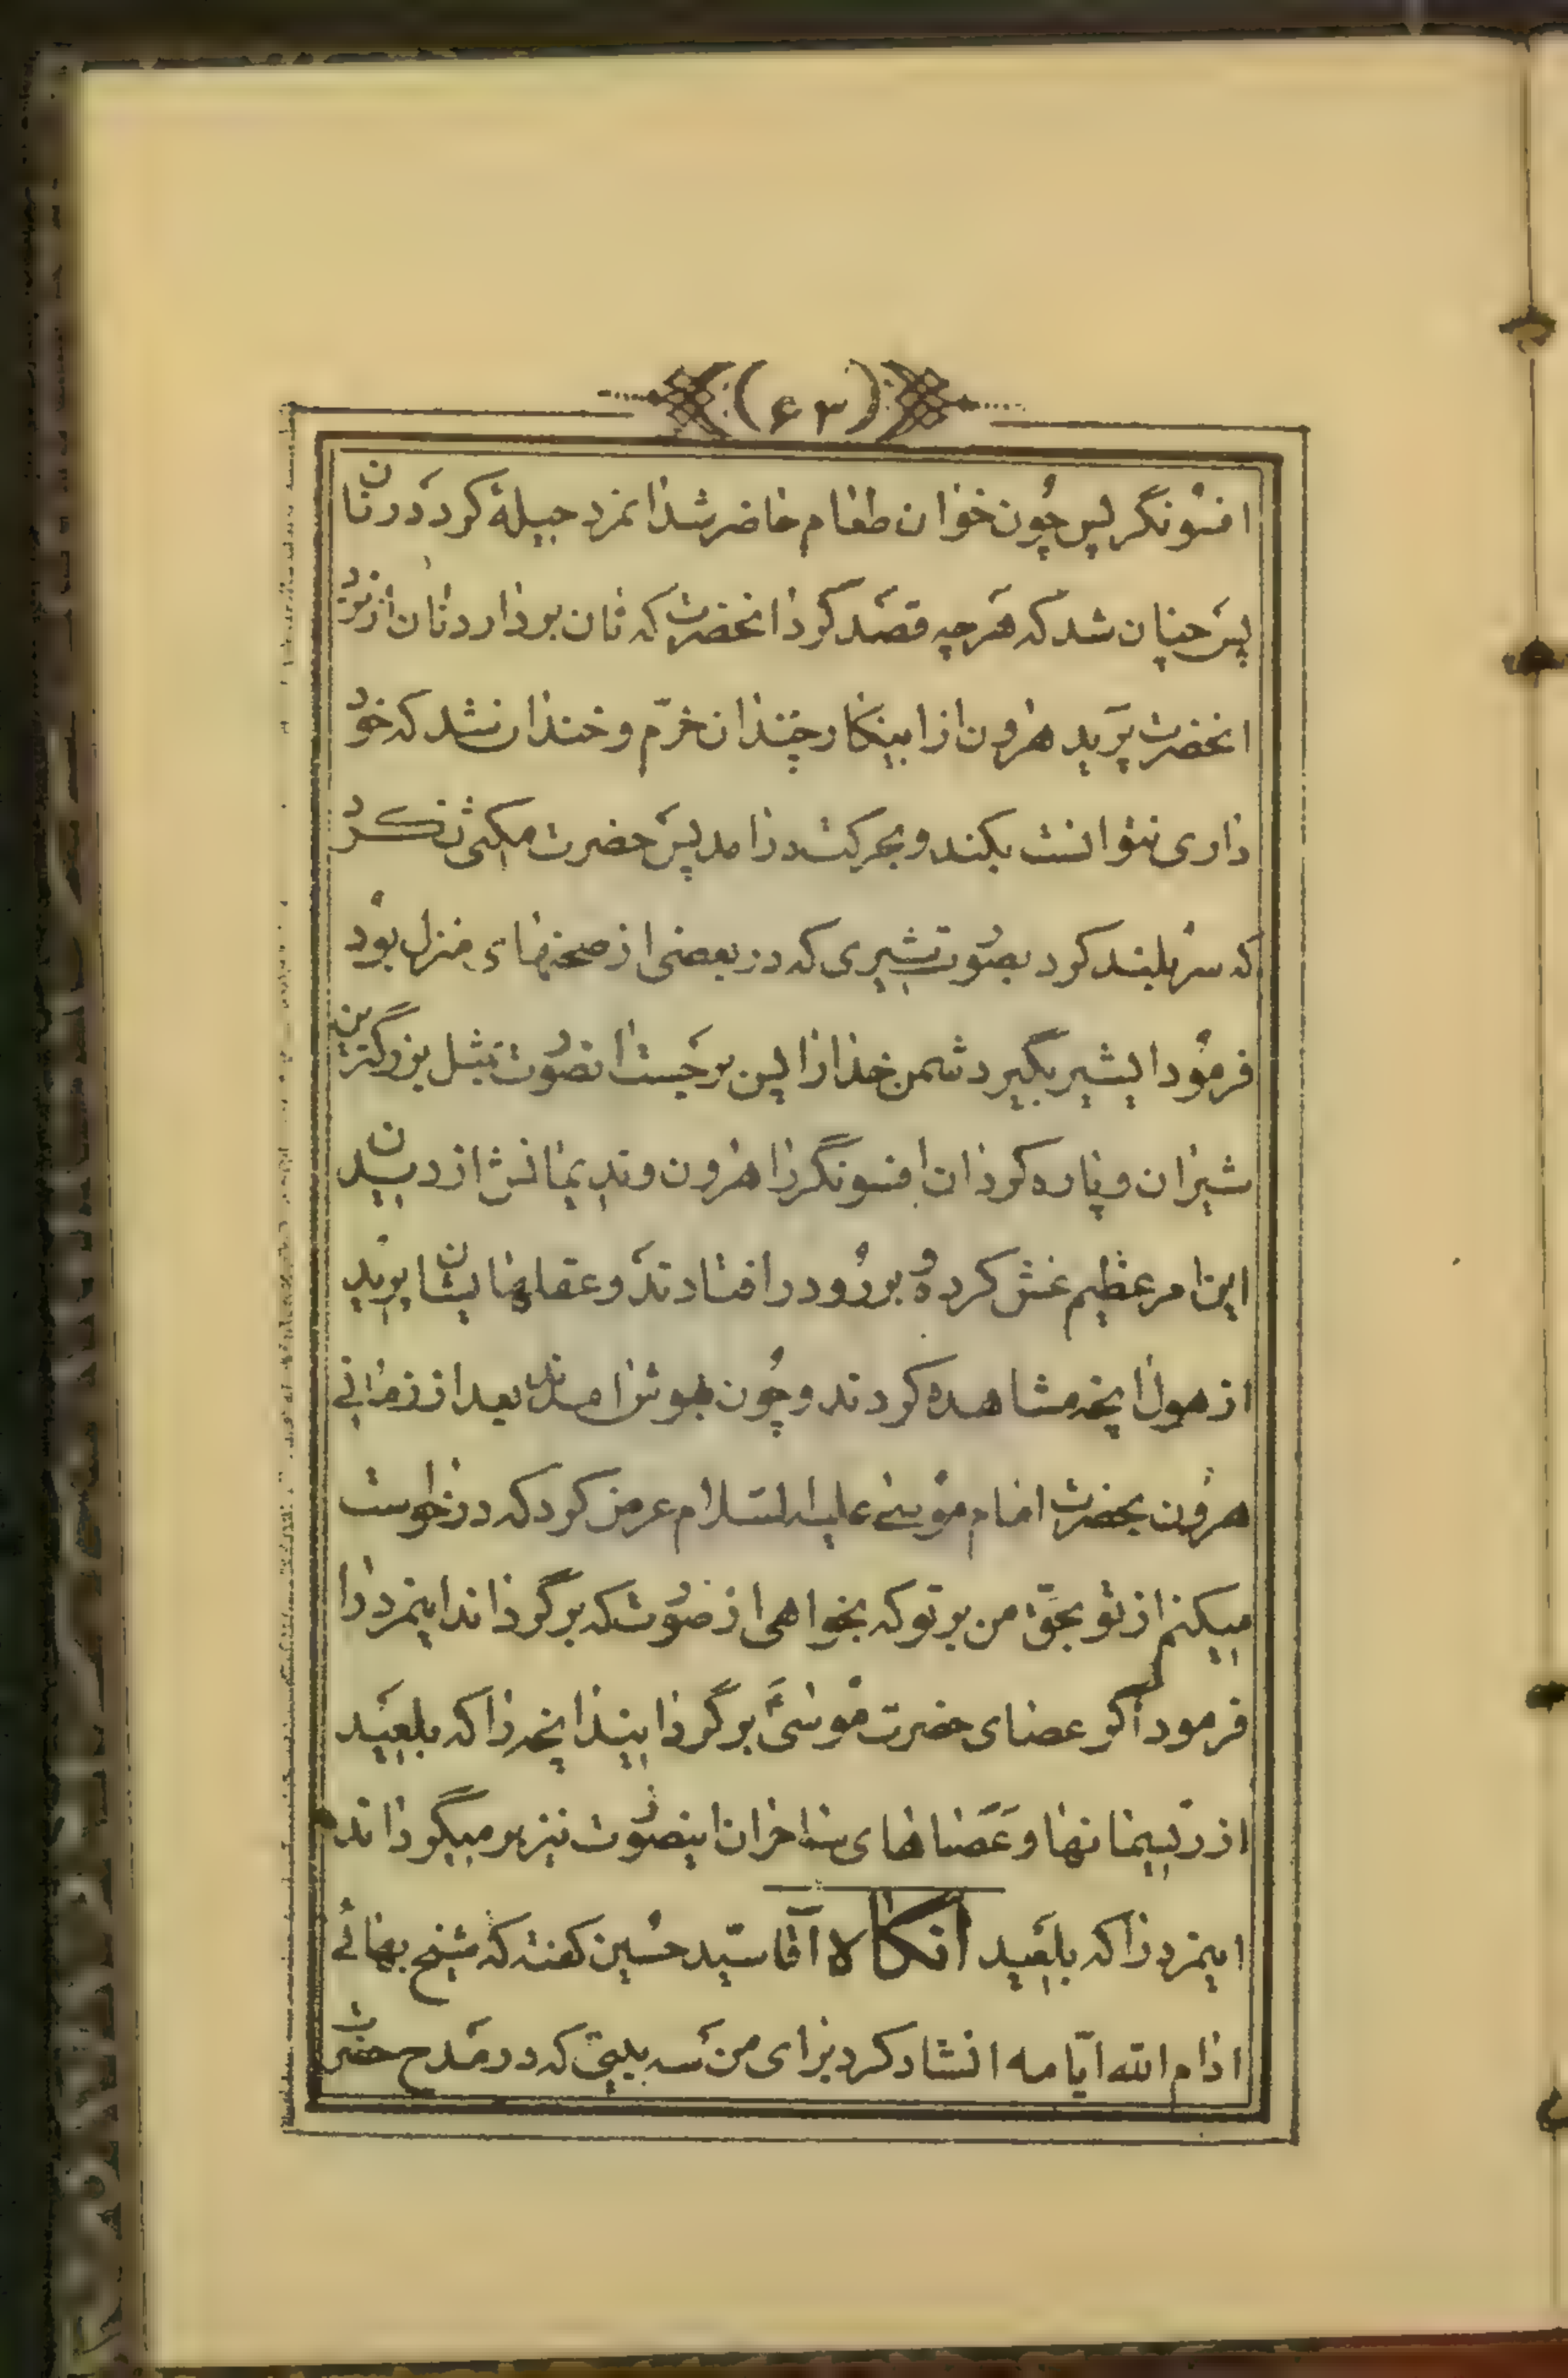 (۶۳)
افسونگر پس چون خوان طعام حاضر شد انمرد حیلهٔ کرد در نان
پس چنان شد که هرچه قصد کرد انحضرت که نان بردارد نان از نزد
انحضرت پرید هرون از اینکار چندان خرّم و خندان شد که خود
داری نتوانست بکند و بحرکت درامد پس حضرت مکثی نکرد
که سر بلند کرد بصورت شیری که در بعضی از صحنهای منزل بود
فرمود ایشیر بگیر دشمن خدا را پس برجست انصورت مثل بزرگترین
شیران و پاره کرد ان افسونگر را هرون و ندیمانش از دیدن
این امر عظیم غش کرده و برو در افتادند و عقلهایشان پرید
از هول انچه مشاهده کردند و چون بهوش امدند بعد از زمانی
هرون بحضرت امام موسی علیه السلام عرض کرد که درخواست
میکنم از تو بحقّ من بر تو که بخواهی از صورت که برگرداند اینمرد را
فرمود اگر عصای حضرت موسیٰ برگردانید انچه را که بلعید
از ریسمانها و عصاهای ساحران اینصورت نیز برمیگرداند
اینمرد را که بلعید انکاه آقا سیّد حسین کفته که شیخ بهائی
ادام الله ایّامه انشاد کرد برای من سه بیتی که در مدح حضرت